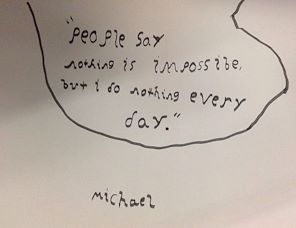 "people say
nothing is impossible,
but i do nothing every
day."
michael